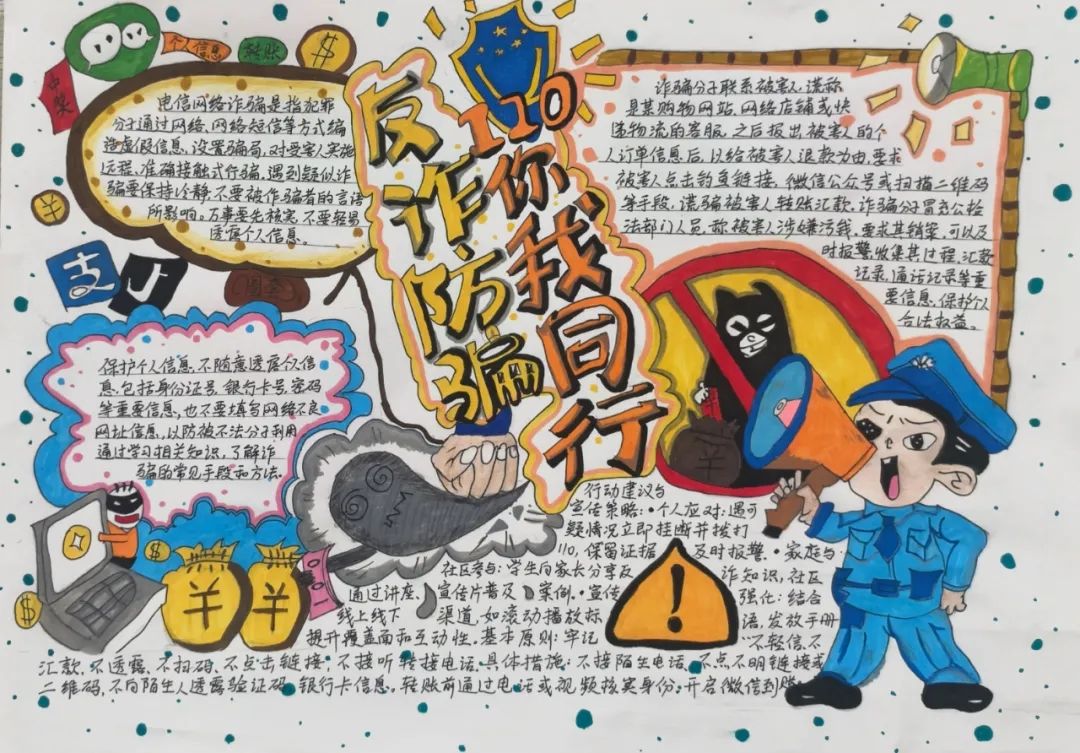 中奖
个人信息
转账
$
电信网络诈骗是指犯罪
分子通过网络、网络短信等方式编
造虚假信息，设置骗局，对受害人实施
远程、准确接触式行骗，遇到疑似诈
骗要保持冷静，不要被作骗者的言语
所影响。万事要先核实，不要轻易
透露个人信息。
¥
支
反诈防骗
110
你我同行
诈骗分子联系被害人，谎称
是某购物网站、网络店铺或快
递物流的客服，之后报出被害人的个
人订单信息后，以给被害人退款为由，要求
被害人点击钓鱼链接，微信公众号或扫描二维码
等手段，谎骗被害人转账汇款，诈骗分子冒充公检
法部门人员，称被害人涉嫌污钱，要求其销案，可以及
时报警，收集其过程，汇款
记录，通话记录等重
要信息，保护个人
合法权益。
保护个人信息，不随意透露个人信
息，包括身份证号，银行卡号，密码
等重要信息，也不要填写网络不良
网址信息，以防被不法分子利用
通过学习相关知识，了解诈
骗的常见手段和方法。
$
¥
¥
$
¥
行动建议与
宣传策略：·个人应对：遇可
疑情况立即挂断并拨打
110，保留证据 及时报警，·家庭与
社区参与：学生向家长分享反 诈知识，社区
通过讲座、宣传片普及 案例。·宣传 强化：结合
线上线下 渠道，如滚动播放标 语，发放手册
提升覆盖面和互动性。基本原则：牢记 “不轻信、不
汇款、不透露、不扫码、不点击链接，不接听转接电话，具体措施：不接陌生电话，不点不明链接或
二维码，不向陌生人透露验证码、银行卡信息。转账前通过电话或视频核实身份，开启微信到账
!